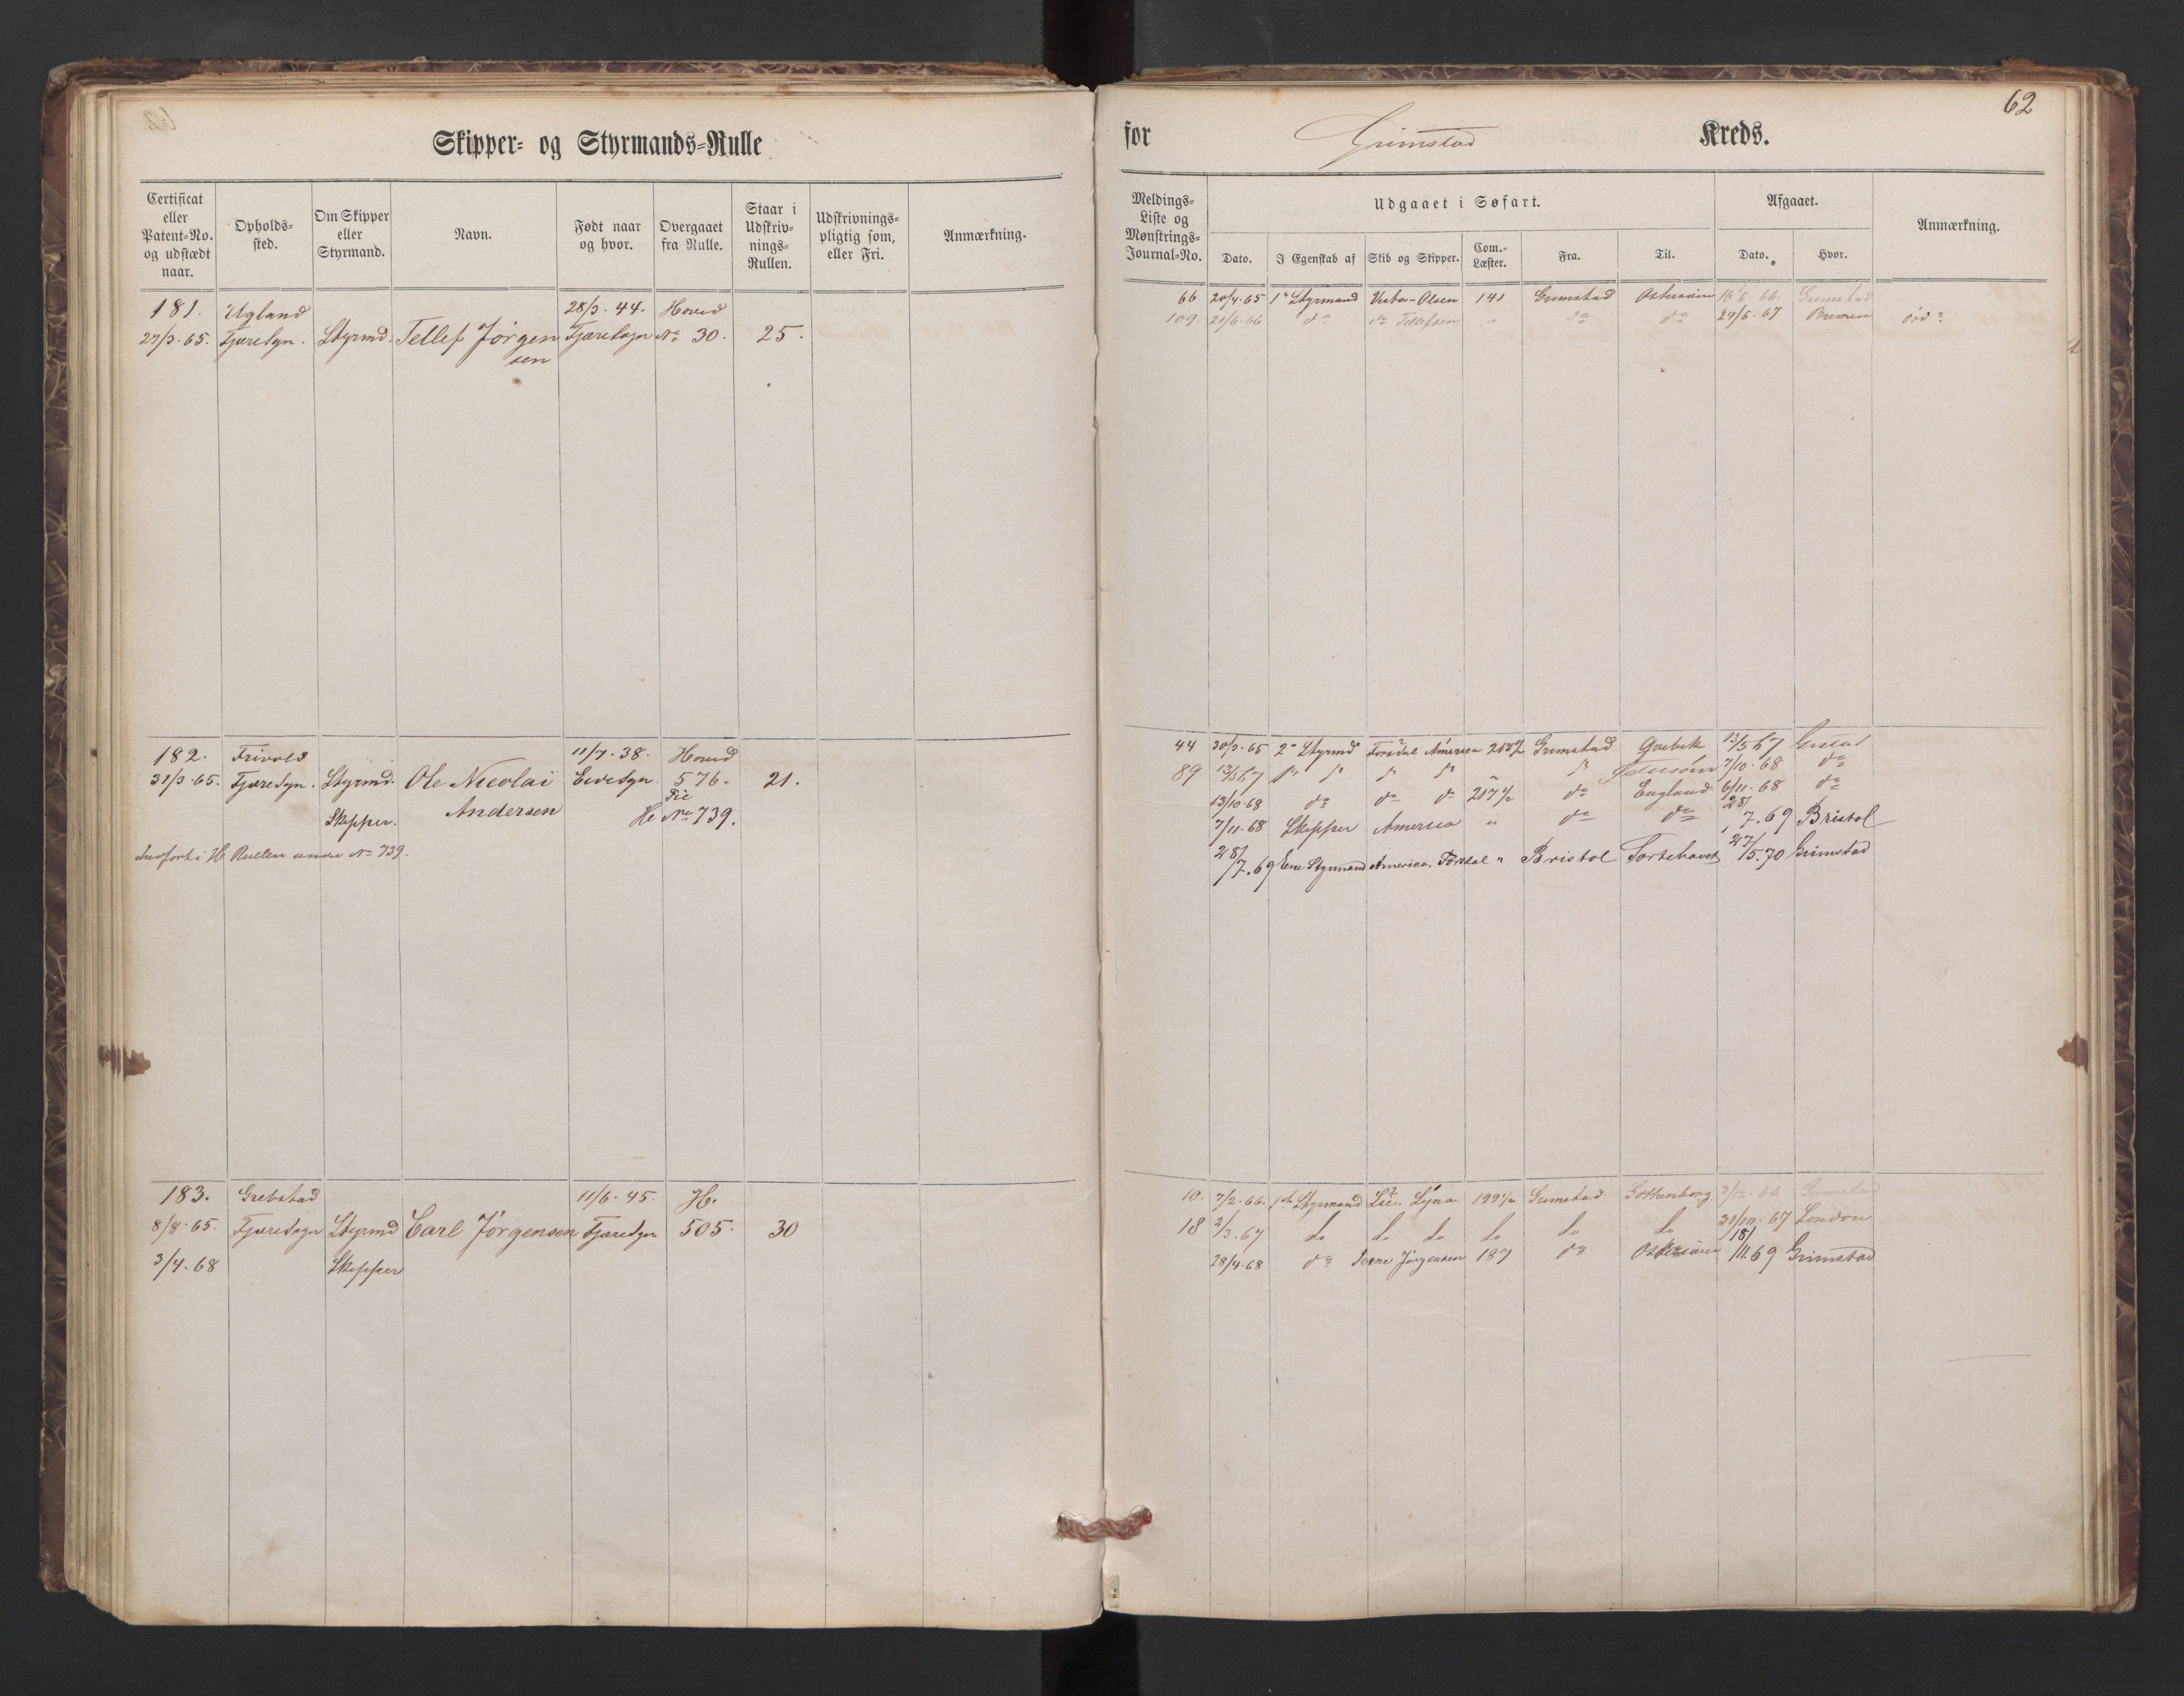 62
Skipper- og Styrmands-Rulle
for Grimstad Kreds.
Certificat eller Patent-No. og udstædt naar.
Opholds-sted.
Om Skipper eller Styrmand.
Navn.
Født naar og hvor.
Overgaaet fra Rulle.
Staar i Udskriv-nings-Rullen.
Udskrivnings-pligtig som, eller Fri.
Anmærkning.
Meldings-Liste og Mønstrings-Journal-No.
Udgaaet i Søfart.
Dato.
I Egenskab af
Skib og Skipper.
Com.-Læster.
Fra.
Til.
Afgaaet.
Dato.
Hvor.
Anmærkning.
181. Ugland 28/3. 44. Hoved
27/3. 65. Fjæresgn. Styrmd. Tellef Jørgen Fjæresogn No 30. 25.
sen
66 20/4. 65 1e Styrmand Vesta-Olsen 141 Grimstad Østersøen 16/6 66. Grimstad
109 21/6. 66 do do Tellefsen " do do 24/5. 67 Bremen død?
182. Frivold 11/7. 38. Hoved
31/3. 65. Fjæresgn. Styrmd. Ole Nicolai Eidesgn. 576. 21.
Andersen
Skipper. H No 739.
Indført i H Rullen under No 739.
44 30/3. 65 2n Styrmd Forsdal America 217 1/2 Grimstad Quebek 13/5 67 Grstad
89 13/5 67 Østersøen 7/10. 68 do
13/10. 68 do do do 217 1/2 do England 6/11. 68 do
7/11. 68 Skipper America " do do 28/7. 69 Bristol
28/7. 69 Ene Styrmand America. Forsdal " Bristol Sortehavet 27/5. 70 Grimstad
183. Grebstad 11/6. 45. H.
8/8. 65. Fjæresogn Styrmd Carl Jørgensen Fjæresgn 505. 30
3/4. 68 Skipper
10. 7/2. 66. 1ste Styrmand 199 1/2 Grimstad Gothenborg 3/12. 66 Grimstad
18 2/3. 67 do do do do do do 31/10. 67 London
28/4. 68 do Jørgensen 187 do Østersøen 18/11. 69 Grimstad